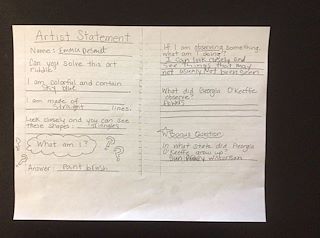 Artist Statement
Name: Emma
Can you solve this art
riddle?
I am colorful and contain
sky blue
I am made of
straight lines.
Look closely and you can see
these shapes:
What am I?
Answer: paint brush
If I am observing something,
what am I doing?
I can look closely and
see things that may
not usually not been seen
What did Georgia O'Keeffe
observe?
Bonus Question
In what state did Georgia
O'Keeffe grow up?
Sun Prairy Wisconsin